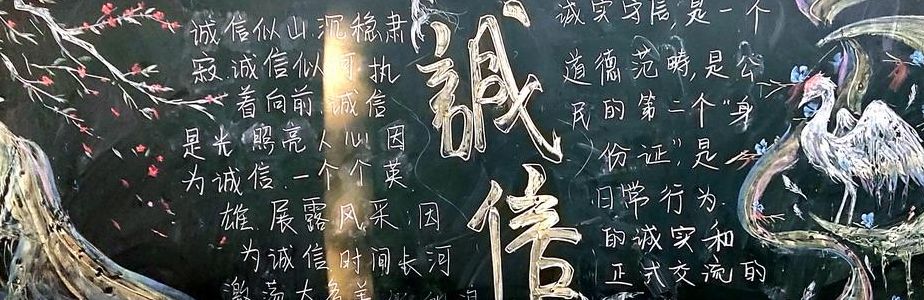 诚信似山,沉稳肃
寂,诚信似河,执
着向前,诚信
是光,照亮人心,因
为诚信,一个个英
雄,展露风采,因
为诚信,时间长河
激荡
誠信
诚实守信,是一个
道德范畴,是公
民的第二个"身
份证",是
日常行为
的诚实和
正式交流的